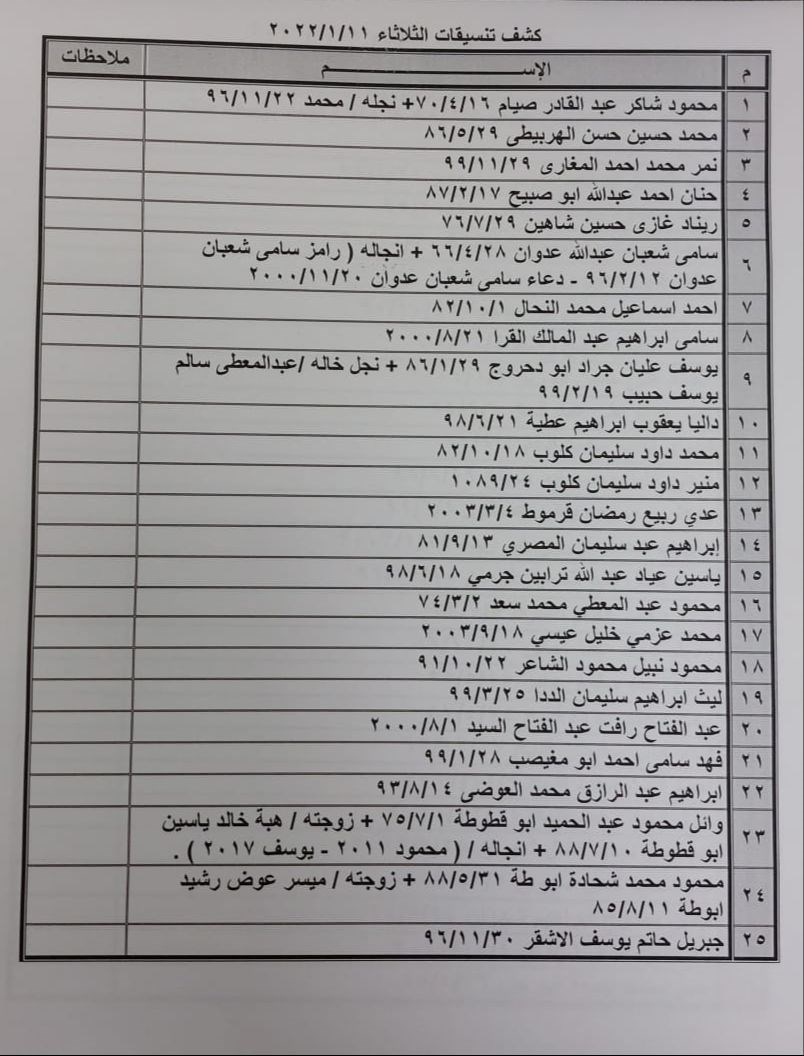 كشف تنسيقات الثلاثاء ٢٠٢٢/١/١١
م الإســــــــــــــــــــم ملاحظات
١ محمود شاكر عبد القادر صيام ٧٠/٤/١٦+ نجله / محمد ٩٦/١١/٢٢
٢ محمد حسين حسن الهربيطى ٨٦/٥/٢٩
٣ نمر محمد احمد المغارى ٩٩/١١/٢٩
٤ حنان احمد عبدالله ابو صبيح ٨٧/٢/١٧
٥ ريناد غازى حسين شاهين ٧٦/٧/٢٩
٦ سامى شعبان عبدالله عدوان ٦٦/٤/٢٨ + انجاله ( رامز سامى شعبان
عدوان ٩٦/٢/١٢ - دعاء سامى شعبان عدوان ٢٠٠٠/١١/٢٠
٧ احمد اسماعيل محمد النحال ٨٢/١٠/١
٨ سامى ابراهيم عبد المالك القرا ٢٠٠٠/٨/٢١
٩ يوسف عليان جراد ابو دحروج ٨٦/١/٢٩ + نجل خاله /عبدالمعطى سالم
يوسف حبيب ٩٩/٢/١٩
١٠ داليا يعقوب ابراهيم عطية ٩٨/٦/٢١
١١ محمد داود سليمان كلوب ٨٢/١٠/١٨
١٢ منير داود سليمان كلوب ١٠٨٩/٢٤
١٣ عدي ربيع رمضان قرموط ٢٠٠٣/٣/٤
١٤ إبراهيم عبد سليمان المصري ٨١/٩/١٣
١٥ ياسين عياد عبد الله ترابين جرمي ٩٨/٦/١٨
١٦ محمود عبد المعطي محمد سعد ٧٤/٣/٢
١٧ محمد عزمي خليل عيسي ٢٠٠٣/٩/١٨
١٨ محمود نبيل محمود الشاعر ٩١/١٠/٢٢
١٩ ليث ابراهيم سليمان الددا ٩٩/٣/٢٥
٢٠ عبد الفتاح رافت عبد الفتاح السيد ٢٠٠٠/٨/١
٢١ فهد سامى احمد ابو مغيصب ٩٩/١/٢٨
٢٢ ابراهيم عبد الرازق محمد العوضى ٩٣/٨/١٤
٢٣ وائل محمود عبد الحميد ابو قطوطة ٧٥/٧/١ + زوجته / هبة خالد ياسين
ابو قطوطة ٨٨/٧/١٠ + انجاله / ( محمود ٢٠١١ - يوسف ٢٠١٧ ) .
٢٤ محمود محمد شحادة ابو طة ٨٨/٥/٣١ + زوجته / ميسر عوض رشيد
ابوطة ٨٥/٨/١١
٢٥ جبريل حاتم يوسف الاشقر ٩٦/١١/٣٠